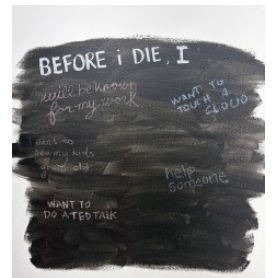 BEFORE i DIE, I
will be known
for my work
WANT TO
TOUCH A
CLOUD
want to
see my kids
grow old
help
someone
WANT TO
DO A TED TALK